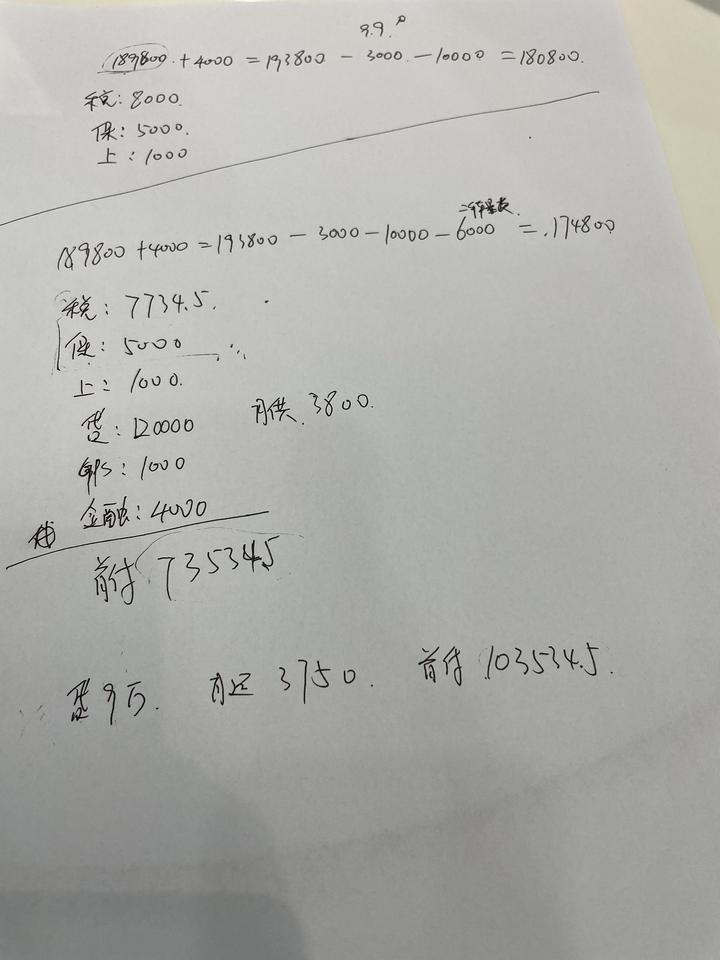 9.9.
189800 + 4000 = 193800 - 3000 - 10000 = 180800.
税: 8000.
保: 5000.
上: 1000
189800 + 4000 = 193800 - 3000 - 10000 - 6000 = 174800
税: 7734.5.
保: 5000
上: 1000.
贷: 120000 月供 3800.
GPS: 1000
金融: 4000
首付 73534.5
贷9万. 月还 3750. 首付 103534.5.